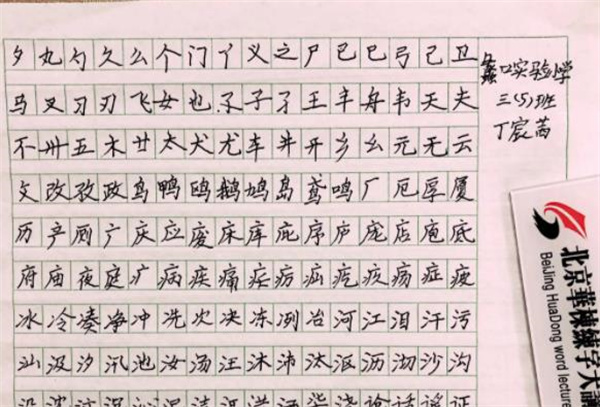 夕丸勺久么个门丫义之尸巴巳弓己卫
马叉习刃飞女也孑子孒王丰舟韦天夫
不卅五木廿太犬尤车井开乡幺元无云
攵改孜政鸟鸭鸥鹅鸠岛鸢鸣厂厄厚厦
历产厕广庆应废床库庇序庐庞店庖底
府庙夜庭疒病疾痛疟疠疝疙疚疡症疲
冰冷凑净冲冼次决冻冽冶河江泪汗污
汕汲汐汛池汝汤汪沐沛汰沤沥沏沙沟
口实验小学
三(5)班
丁宸芮
北京華棟練字大講
BeiJing HuaDong word lecture